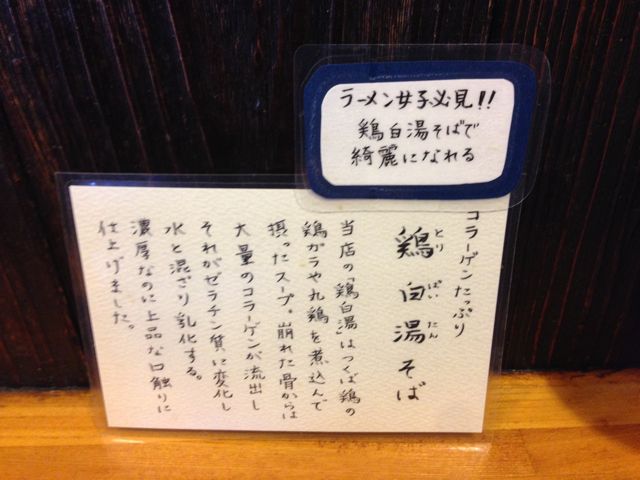 ラーメン女子必見!!
鶏白湯そばで
綺麗になれる
コラーゲンたっぷり
鶏白湯そば
とり ぱい たん
当店の「鶏白湯」はつくば鶏の
鶏ガラや丸鶏を煮込んで
摂ったスープ。崩れた骨からは
大量のコラーゲンが流出し
それがゼラチン質に変化し
水と混ざり乳化する。
濃厚なのに上品な口触りに
仕上げました。